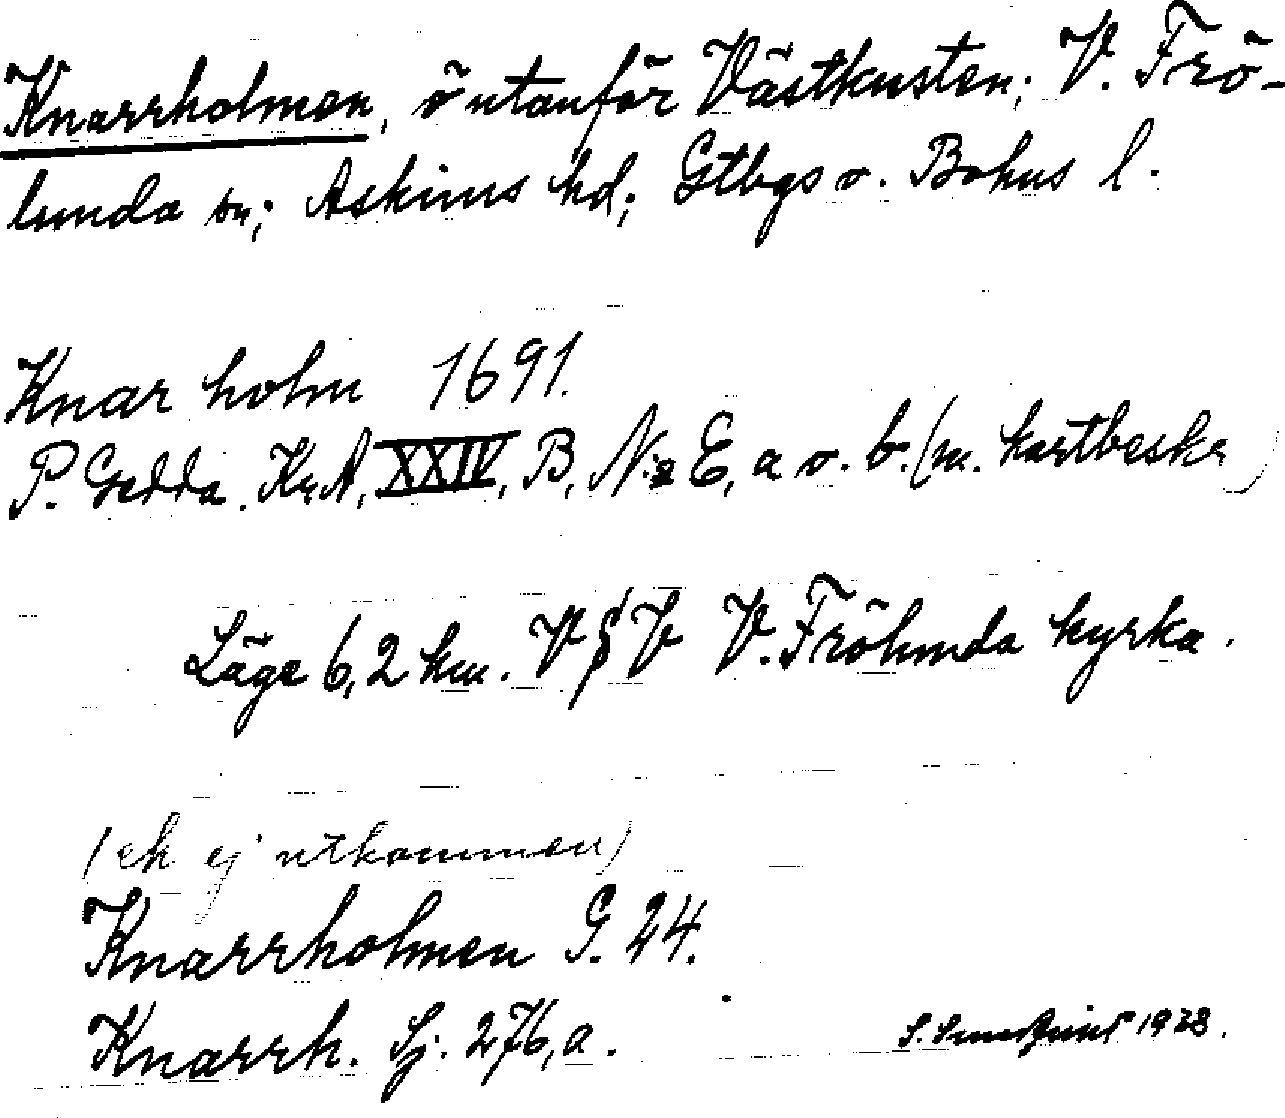 Knarrholmen, ö utanför Västkusten; V. Frö-
lunda sn; Askims hd; Gtbgs o. Bohus l.
Knar holm 1691.
P. Gedda. Kr.A, XXIV, B, N:o E, a o. b. (m. kartbeskr)
Läge 6,2 km. V § V V. Frölunda kyrka.
(ek ej utkommen)
Knarrholmen G. 24.
Knarrh. Sj. 276,a.
S. 1938.